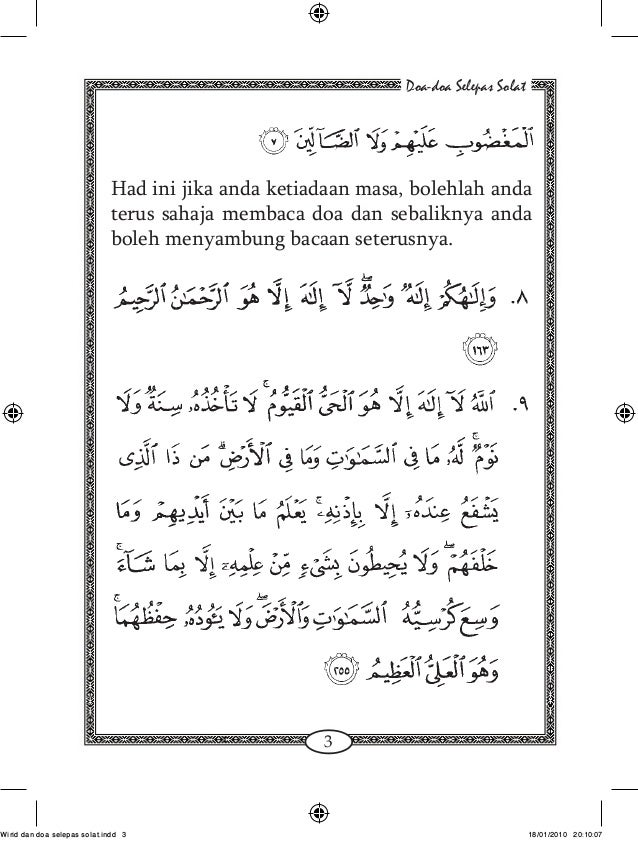 Doa-doa Selepas Solat
ٱلْمَغْضُوبِ عَلَيْهِمْ وَلَا ٱلضَّآلِّينَ ٧
Had ini jika anda ketiadaan masa, bolehlah anda
terus sahaja membaca doa dan sebaliknya anda
boleh menyambung bacaan seterusnya.
٨. وَإِلَـٰهُكُمْ إِلَـٰهٌ وَٰحِدٌ ۖ لَّآ إِلَـٰهَ إِلَّا هُوَ ٱلرَّحْمَـٰنُ ٱلرَّحِيمُ
١٦٣
٩. ٱللَّهُ لَآ إِلَـٰهَ إِلَّا هُوَ ٱلْحَىُّ ٱلْقَيُّومُ ۚ لَا تَأْخُذُهُۥ سِنَةٌ وَلَا
نَوْمٌ ۚ لَّهُۥ مَا فِى ٱلسَّمَـٰوَٰتِ وَمَا فِى ٱلْأَرْضِ ۗ مَن ذَا ٱلَّذِى
يَشْفَعُ عِندَهُۥٓ إِلَّا بِإِذْنِهِۦ ۚ يَعْلَمُ مَا بَيْنَ أَيْدِيهِمْ وَمَا
خَلْفَهُمْ ۖ وَلَا يُحِيطُونَ بِشَىْءٍ مِّنْ عِلْمِهِۦٓ إِلَّا بِمَا شَآءَ ۚ
وَسِعَ كُرْسِيُّهُ ٱلسَّمَـٰوَٰتِ وَٱلْأَرْضَ ۖ وَلَا يَـُٔودُهُۥ حِفْظُهُمَا ۚ
وَهُوَ ٱلْعَلِىُّ ٱلْعَظِيمُ ٢٥٥
3
Wirid dan doa selepas solat.indd 3
18/01/2010 20:10:07